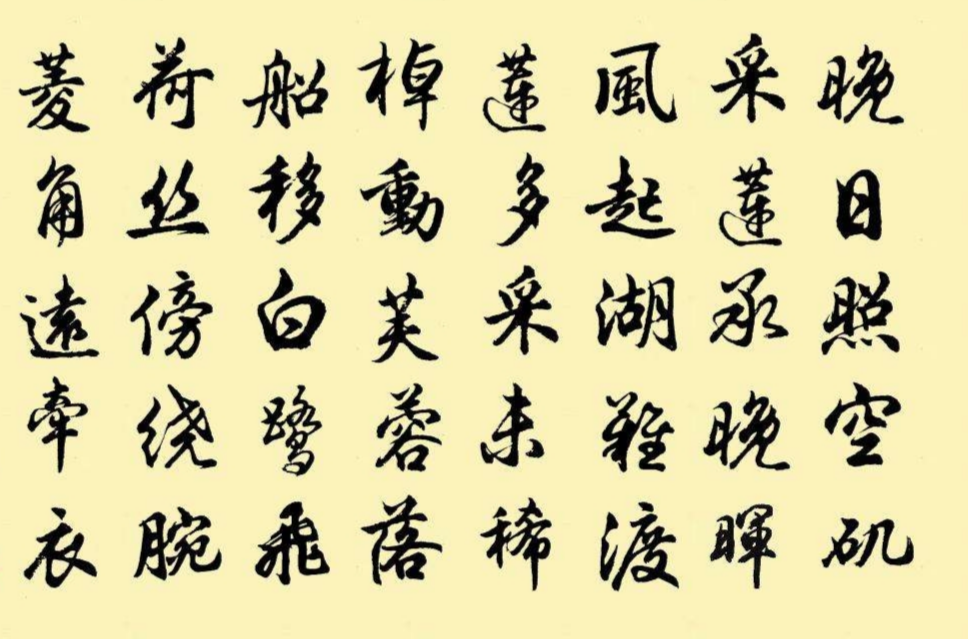 晚日照空矶
采蓮承晚暉
風起湖難渡
蓮多采未稀
棹動芙蓉落
船移白鹭飛
荷丝傍绕腕
菱角遠牽衣